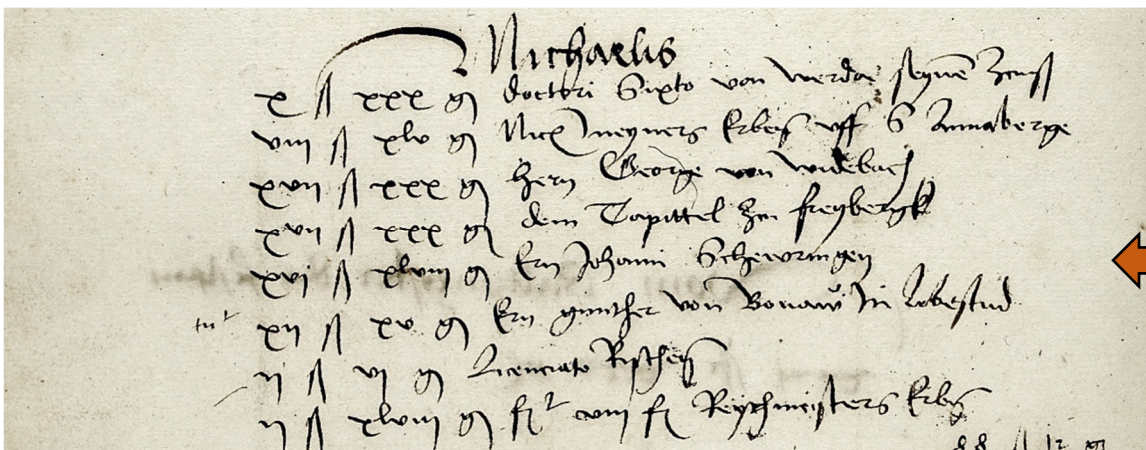 Michaelis
x ß xxx gr doctori Sixto von werde seynen Zcinß
viii ß xlv gr Nickel meyners Erben uff S Annaberge
xvii ß xxx gr hern George von widebach
xvii ß xxx gr dem Capittel zcu freybergk
xvi ß xlviii gr Ern Johann Schewringen
xii ß xv gr Ern gunther von Bonaw In lobestad
ii ß vi gr Licenciato
ii ß xlviii gr viii Reychmeisters Erben